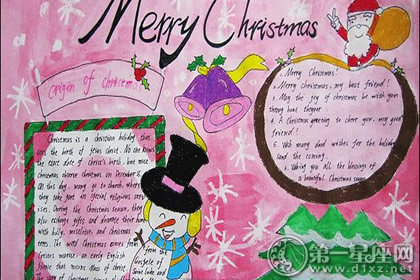 Merry Christmas
Origin of Christmas
Christmas is a christian holiday that
the birth of Jesus christ. No one knows
the exact date of christ's birth, but most
christmas observe christmas on December
On this day, many go to church, where
they take part in special religious
During the Christmas season,
also exchange gifts and decorate their homes
with holly, mistletoe, and Christmas
trees. The word Christmas comes from
Christes maesse, an early English
phrase that means Mass of christ
from the
gospels of
Saint Luke and
1. Merry Christmas!
2. Merry Christmas, my best friend!
3. May the joy of christmas be with you
4. A Christmas greeting to cheer you, my good
friend!
5. With many good wishes for the holiday
and the coming
6. Wishing you all the blessings of
a beautiful Christmas season
第一星座网
www.d1xz.net